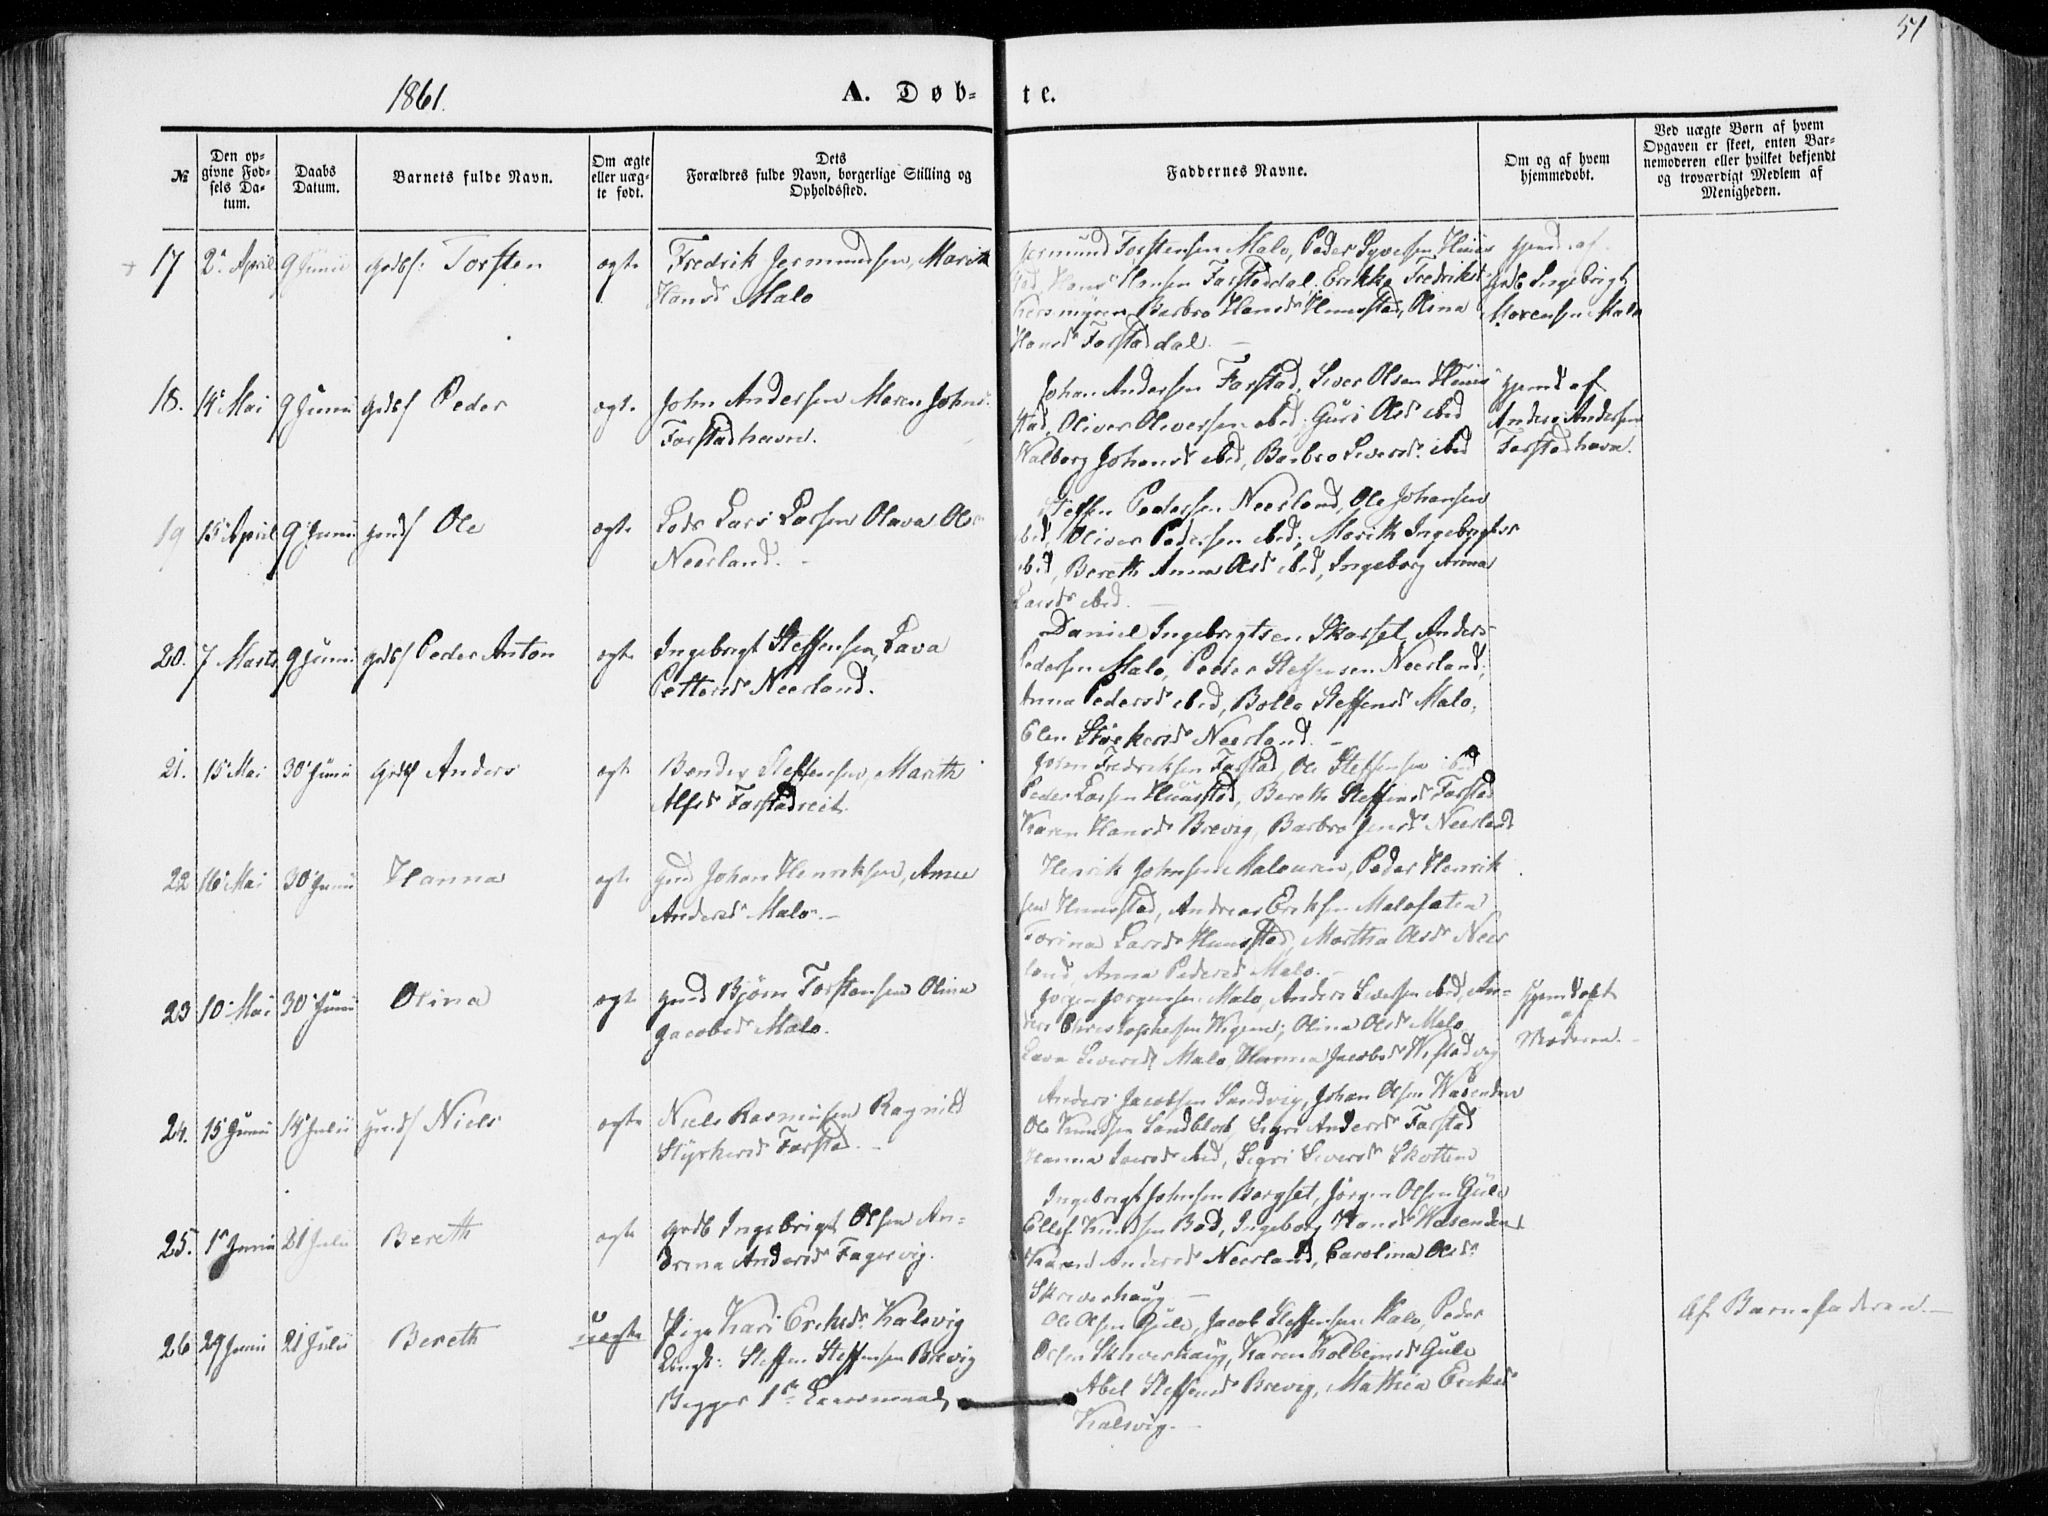 51
1861.
A. Døb-
te.
№
Den op-
givne Fød-
sels Da-
tum.
Daabs
Datum.
Barnets fulde Navn.
Om ægte
eller uæg-
te født.
Dets
Forældres fulde Navn, borgerlige Stilling og
Opholdssted.
Faddernes Navne.
Om og af hvem
hjemmedøbt.
Ved uægte Børn af hvem
Opgaven er skeet, enten Bar-
nemoderen eller hvilket bekjendt
og troværdigt Medlem af
Menigheden.
17 2 April 9 Junii Torsten ægte
Fredrik Jermundsen, Marith
Hansd Malo
Jermund Torstensen Malo, Peder Hans Hansen Farstaddal, Erikke Fredriksd
Barbro Hansd Hunstad, Olina
Hansd Farstaddal.
hjemd af
Ingebrigt
Malo
18. 14 Mai 9 Junii Peder ægte
John Andersen Maren Johnsd
Farstadhavn.
Johan Andersen Farstad, Siver Olsen Huns
stad, Oliver Oliversen ibid, Guri Olsd ibid
Valborg Johansd ibid, Barbro Siversd ibid
hjemd af
Anders Andersen
Farstadhavn.
19 15 April 9 Junii Ole ægte
Lods Lars Larsen Olava Ols
Neerland.
Steffen Pedersen Neerland, Ole Johansen
ibid, Oliver Pedersen ibid, Marith Ingebrigtsd
ibid, Bereth Anna Olsd ibid, Ingeborg Anna
Larsd ibid.
20. 7 Marts 9 Junii Peder Anton ægte
Ingebrigt Steffensen, Lava
Pettersd Neerland.
Daniel Ingebrigtsen Skarset, Anders
Pedersen Malo, Peder Steffensen Neerland,
Anna Pedersd ibid, Bolla Steffensd Malo,
Elen Styrkersd Neerland.
21. 15 Mai 30 Junii Anders ægte
Bendix Steffensen, Marith
Alfsd Farstadreit
John Fredriksen Farstad, Ole Steffensen ibid
Peder Larsen Hunstad, Bereth Steffensd Farstad
Karen Hansd Brevig, Barbro Jensd Neerland
22 16 Mai 30 Junii Hanna ægte
Johan Henriksen, Anne
Andersd Malo.
Henrik Johnsen Peder Henrik
sen Hunstad, Andreas Eriksen
Larsd Hunstad, Martha Olsd Neer
land, Anna Pedersd Malo.
23 10 Mai 30 Junii Olina ægte
Bjørn Torstensen Olina
Jacobsd Malo.
Jørgen Jørgensen Malo, Anders Siversen ibid, An-
ders Christophersen Olina Olsd Malo
Lava Siversd Malo, Hanna Jacobsd
Hjemdøbt
af
Moderen.
24. 15 Junii 14 Julii Niels ægte
Niels Rasmussen Ragnild
Styrkersd Farstad.
Anders Jacobsen Sandvig, Johan Olsen Vasenden
Ole Knudsen Sandblost, Sigri Andersd Farstad
Hanna Iversd ibid, Sigri Siversd Skotten
25. 1 Junii 21 Julii Bereth ægte
Ingebrigt Olsen An-
drina Andersd Fagervig.
Ingebrigt Johnsen Bergset, Jørgen Olsen Gule
Ellef Knudsen Bod, Ingeborg Hansd Vasenden
Karen Andersd Neerland, Carolina Olsd
Skreverhaug
26 29 Junii 21 Julii Bereth uægte
Pige Kari Eriksd Kalsvig
Ungk: Steffen Steffensen Brevig
Begges 1ste Leiermaal
Ole Olsen Gule, Jacob Steffensen Malo, Peder
Olsen Skreverhaug, Karen Kolbeinsd Gule
Abel Steffensd Brevig, Mathea Eriksd
Kalsvig.
Af Barnefaderen.